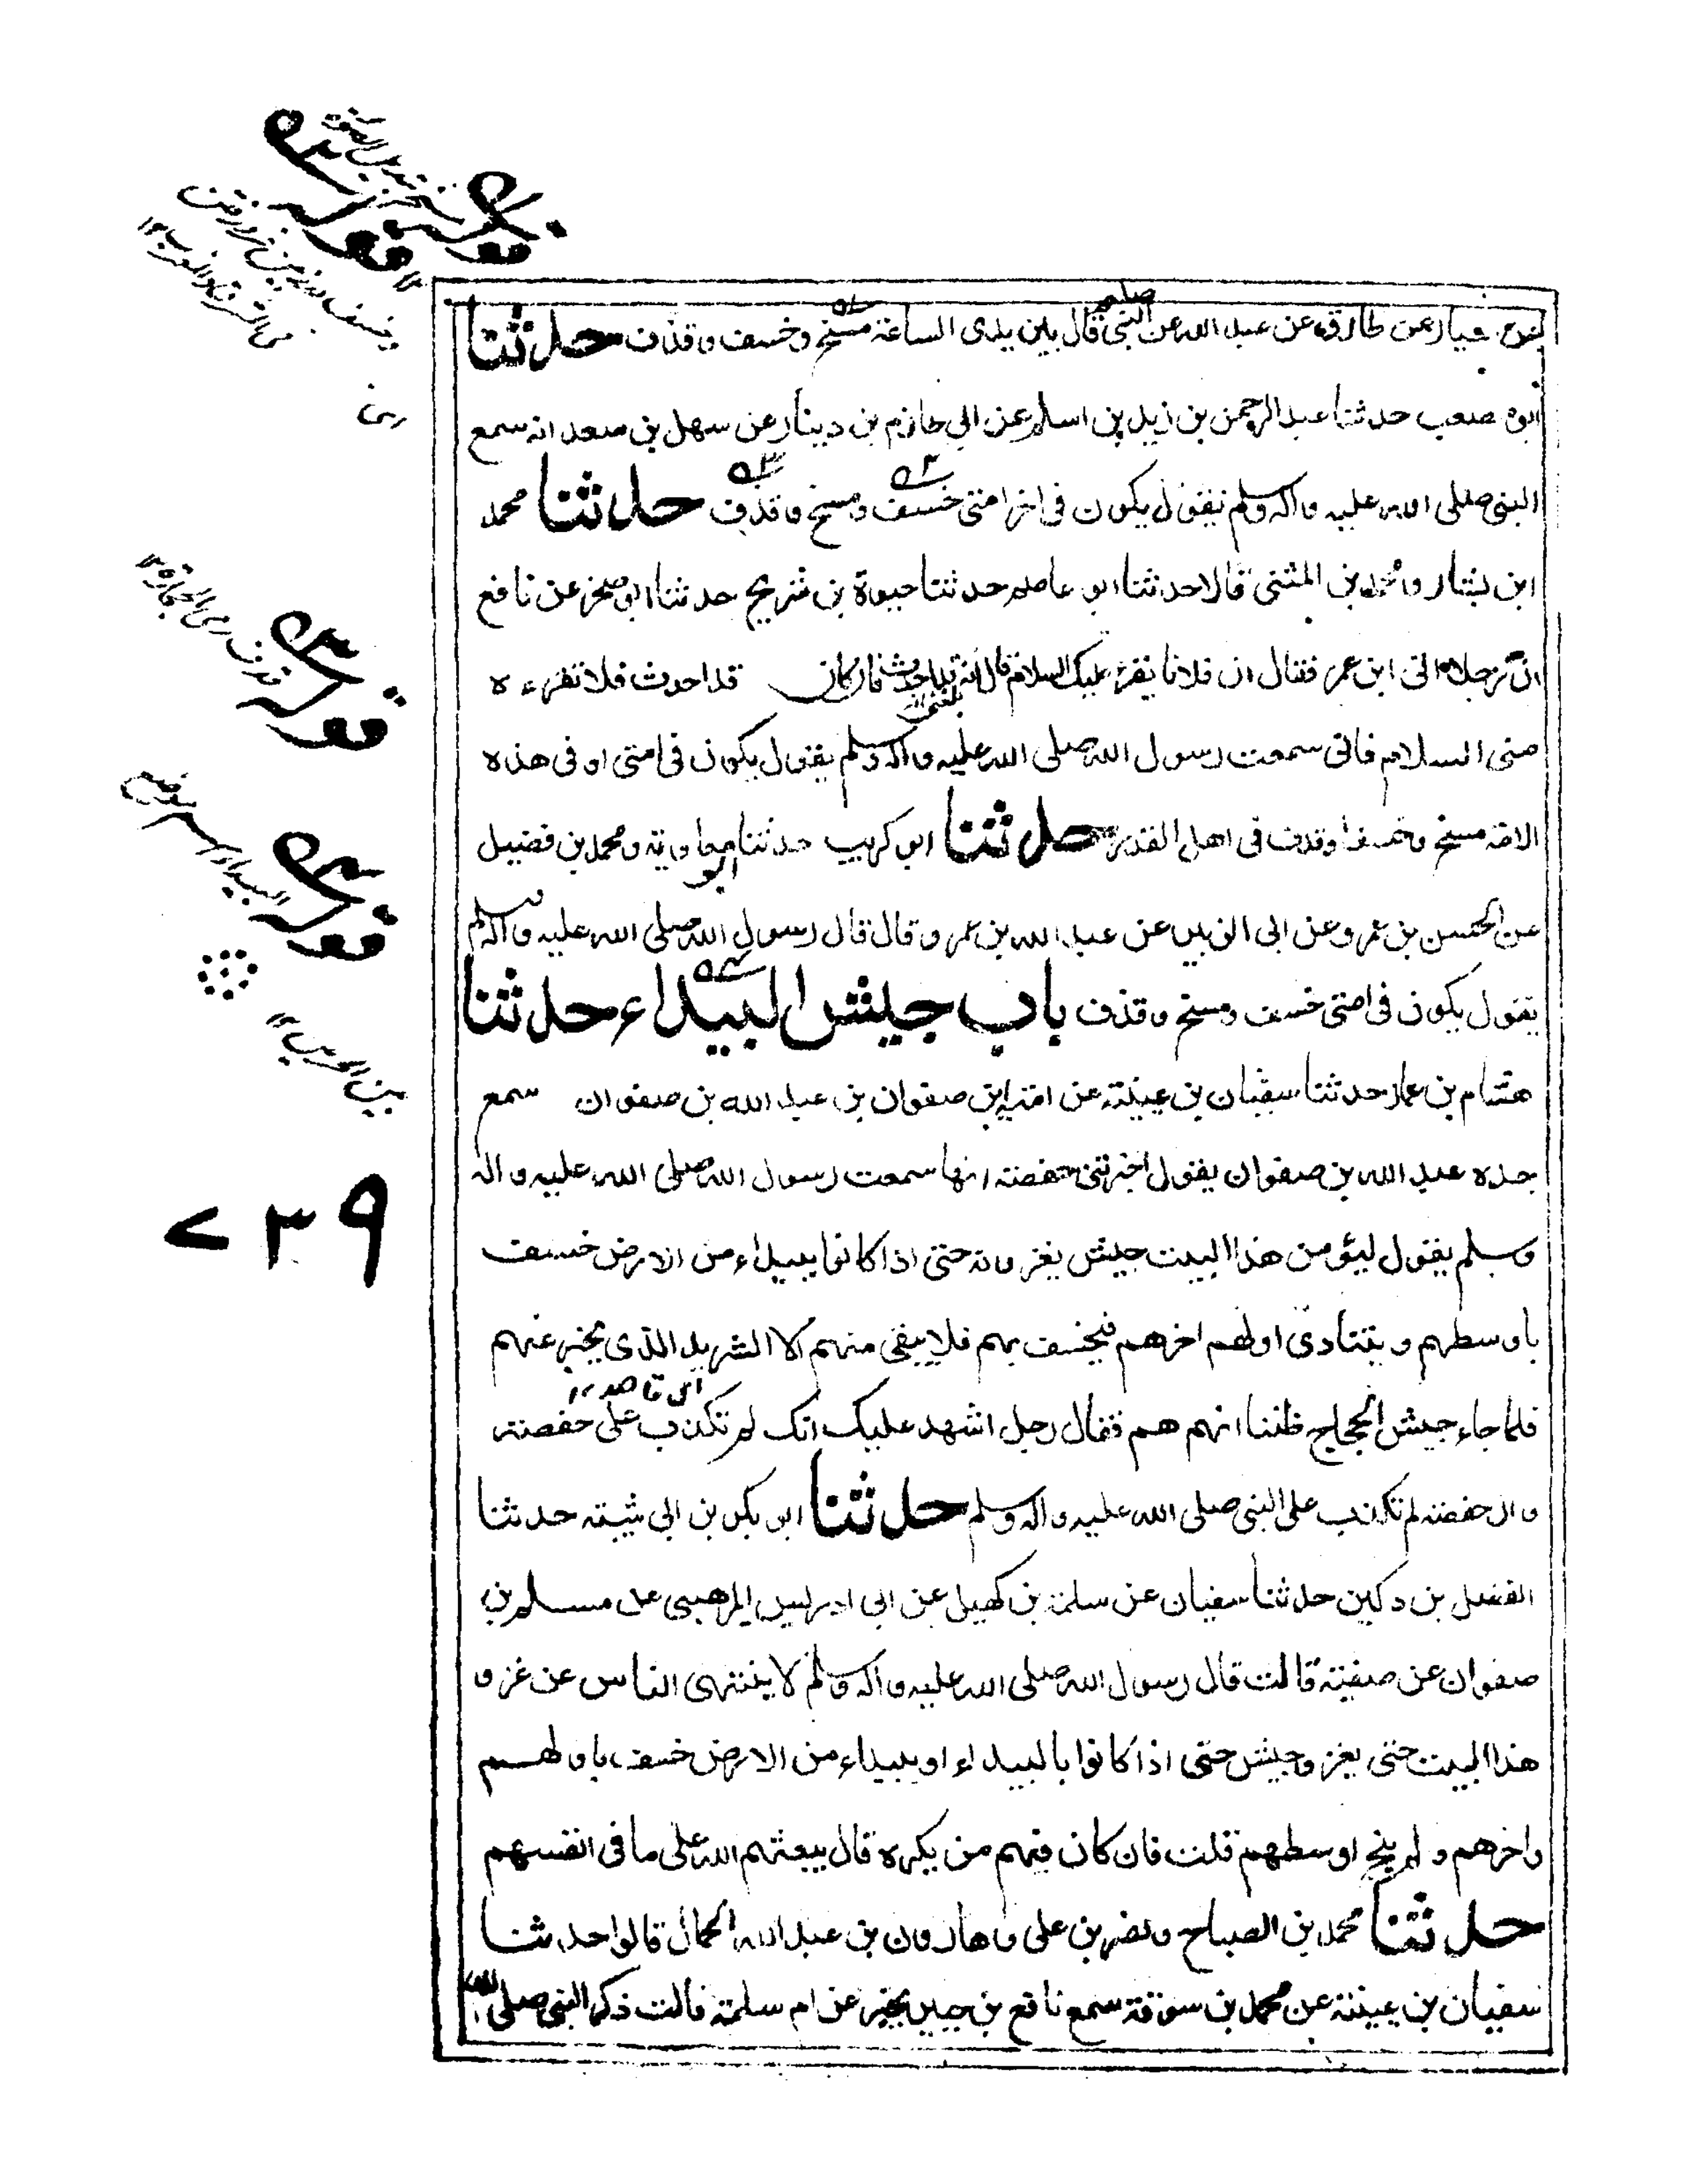 عن سيار عن طارق عن عبد الله عن النبي صلعم قال بين يدى الساعة مسخ وخسف وقذف حدثنا
ابو مصعب حدثنا عبد الرحمن بن زيد بن اسلم عن ابي حازم بن دينار عن سهل بن سعد انه سمع
النبى صلى الله عليه واله وسلم يقول يكون فى اخر امتى خسف ومسخ وقذف حدثنا محمد
ابن بشار ومحمد بن المثنى قالا حدثنا ابو عاصم حدثنا حيوة بن شريح حدثنا ابو صخر عن نافع
ان رجلا اتى ابن عمر فقال ان فلانا يقرء عليك السلام قال انه بلغنى انه قد احدث فان كان قد احدث فلا تقرءه
منى السلام فانى سمعت رسول الله صلى الله عليه واله وسلم يقول يكون فى امتى او فى هذه
الامة مسخ وخسف وقذف فى اهل القدر حدثنا ابو كريب حدثنا ابو معاوية ومحمد بن فضيل
عن الحسن بن عمرو عن ابى الزبير عن عبد الله بن عمرو قال قال رسول الله صلى الله عليه واله وسلم
يقول يكون فى امتى خسف ومسخ وقذف باب جيش البيداء حدثنا
هشام بن عمار حدثنا سفيان بن عيينة عن امية بن صفوان بن عبد الله بن صفوان سمع
جده عبد الله بن صفوان يقول اخبرتنى حفصة انها سمعت رسول الله صلى الله عليه واله
وسلم يقول ليؤمن هذا البيت جيش يغزونه حتى اذا كانوا ببيداء من الارض خسف
باوسطهم ويتنادى اولهم اخرهم فيخسف بهم فلا يبقى منهم الا الشريد الذى يخبر عنهم
فلما جاء جيش الحجاج ظننا انهم هم فقال رجل اشهد عليك انك لم تكذب على حفصة
وان حفصة لم تكذب على النبى صلى الله عليه واله وسلم حدثنا ابو بكر بن ابي شيبة حدثنا
الفضل بن دكين حدثنا سفيان عن سلمة بن كهيل عن ابى ادريس المرهبى عن مسلم بن
صفوان عن صفية قالت قال رسول الله صلى الله عليه واله وسلم لا ينتهى الناس عن غزو
هذا البيت حتى يغزو جيش حتى اذا كانوا بالبيداء او ببيداء من الارض خسف باولهم
واخرهم ولم ينج اوسطهم قلت فان كان فيهم من يكره قال يبعثهم الله على ما فى انفسهم
حدثنا محمد بن الصباح ونصر بن على وهارون بن عبد الله الحمال قالوا حدثنا
سفيان بن عيينة عن محمد بن سوقة سمع نافع بن جبير يخبر عن ام سلمة قالت ذكر النبى صلى الله
اى قاصد ١٢
قوله
قوله
قوله
قوله
٧٣٩